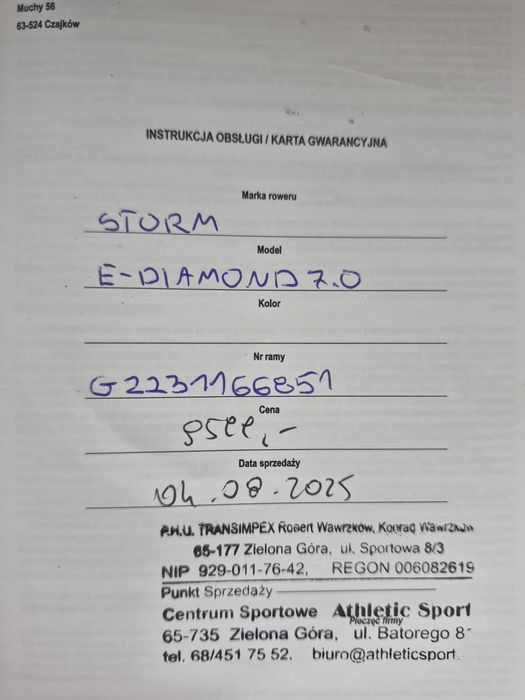 Muchy 56
63-524 Czajków
INSTRUKCJA OBSŁUGI / KARTA GWARANCYJNA
Marka roweru
STORM
Model
E-DIAMOND 7.0
Kolor
Nr ramy
G2231166851
Cena
Data sprzedaży
04.08.2025
P.H.U. TRANSIMPEX Robert Wawrzków, Konrad Wawrzków
65-177 Zielona Góra, ul. Sportowa 8/3
NIP 929-011-76-42, REGON 006082619
Punkt Sprzedaży
Centrum Sportowe Athletic Sport
Pieczęć firmy
65-735 Zielona Góra, ul. Batorego 8
tel. 68/451 75 52, biuro@athleticsport.